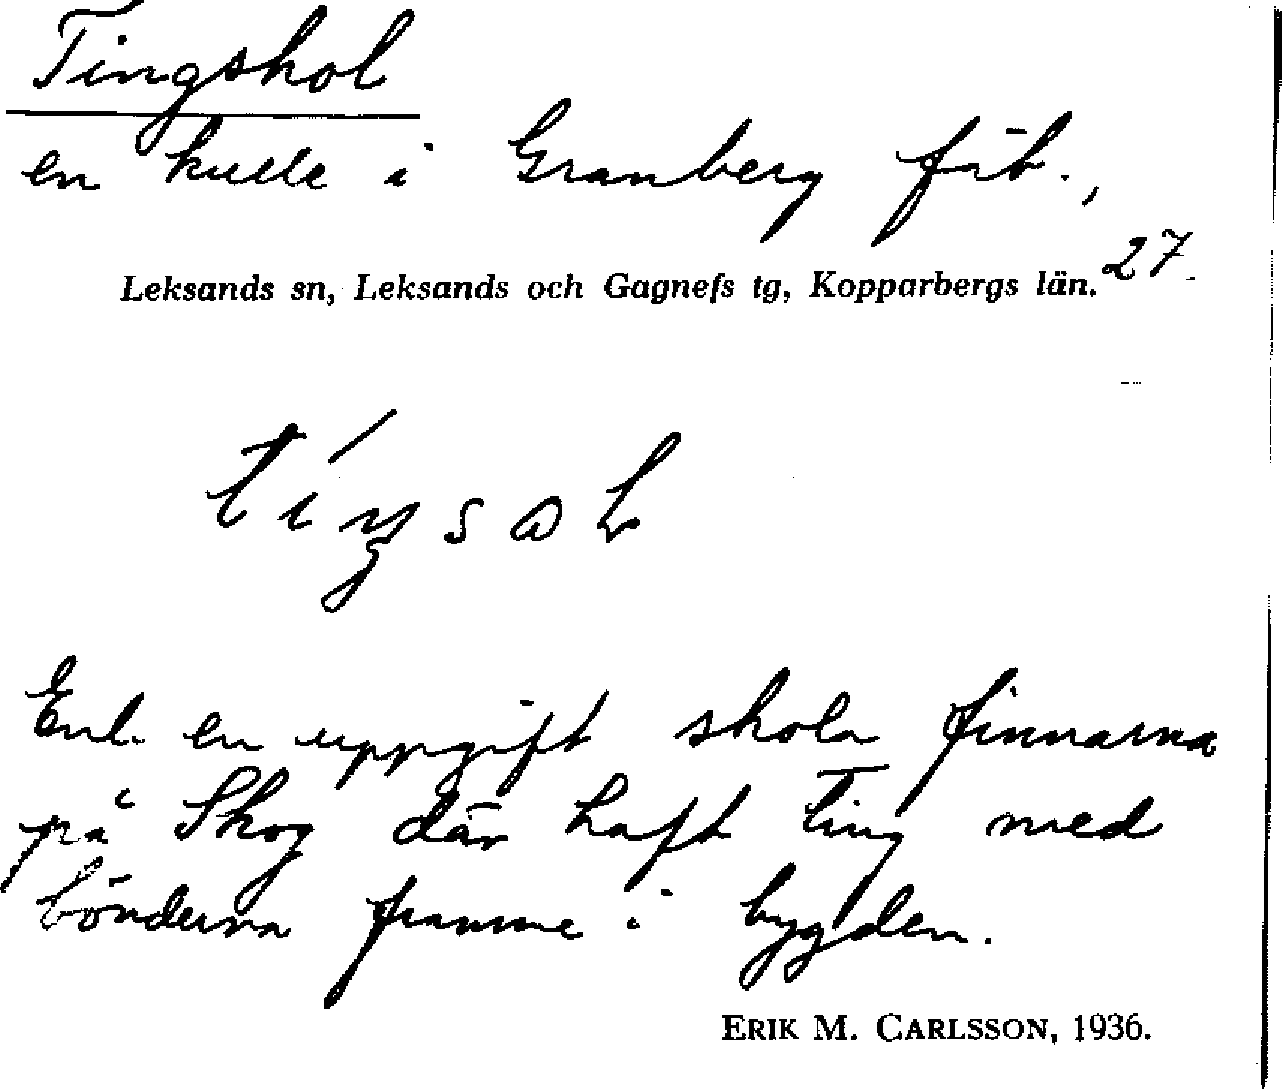 Tingshol
en kulle i Granberg fäb.,
Leksands sn, Leksands och Gagnefs tg, Kopparbergs län. 27.
Enl. en uppgift skola finnarna
på Skog där haft ting med
bönderna framme i bygden.
ERIK M. CARLSSON, 1936.